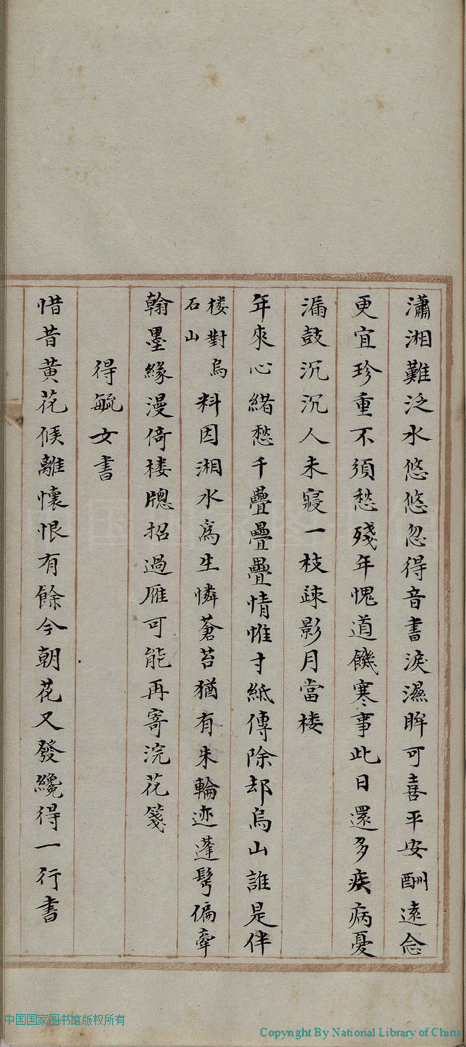 瀟湘難泛水悠悠忽得音書淚濕眸可喜平安酬遠念
更宜珍重不須愁殘年愧道饑寒事此日還多疾病憂
漏鼓沉沉人未寢一枝疎影月當楼
年來心緒愁千疊疊疊情惟寸紙傳除却烏山誰是伴
楼對烏
石山
料因湘水為生憐蒼苔猶有朱輪迹蓬髩偏牽
翰墨緣漫倚楼牎招過雁可能再寄浣花箋
得毓女書
惜昔黄花候離懷恨有餘今朝花又發纔得一行書
中国国家图书馆版权所有
Copyright By National Library of China